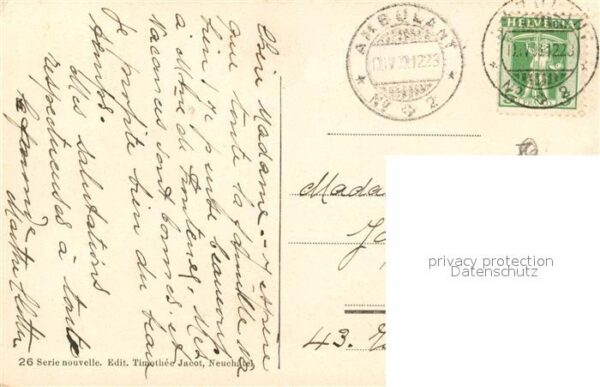 Chère Madame, - J'espère
que toute la famille va
bien; je pense beaucoup
à Mes
vacances sont bonnes. et
Je profite bien du beau
temps.
Mes salutations
respectueuses à toute
la famille
Martha
26 Serie nouvelle. Edit. Timothée Jacot, Neuchâtel
AMBULANT
No 2
HELVETIA
Mada
43.
privacy protection
Datenschutz